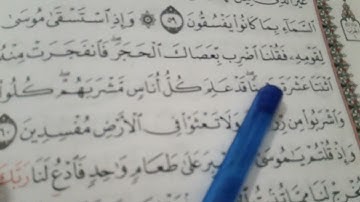 السَّمَآءِ بِمَا كَانُوا۟ يَفْسُقُونَ ۝٥٩ ۞ وَإِذِ ٱسْتَسْقَىٰ مُوسَىٰ
لِقَوْمِهِۦ فَقُلْنَا ٱضْرِب بِّعَصَاكَ ٱلْحَجَرَ ۖ فَٱنفَجَرَتْ مِنْهُ
ٱثْنَتَا عَشْرَةَ قَدْ عَلِمَ كُلُّ أُنَاسٍ مَّشْرَبَهُمْ ۖ كُلُوا۟
وَٱشْرَبُوا۟ مِن وَلَا تَعْثَوْا۟ فِى ٱلْأَرْضِ مُفْسِدِينَ ۝٦٠
وَإِذْ قُلْتُمْ يَٰمُوسَىٰ عَلَىٰ طَعَامٍ وَٰحِدٍ فَٱدْعُ لَنَا رَبَّكَ
يُخْرِجْ لَنَا مِمَّا تُنۢبِتُ